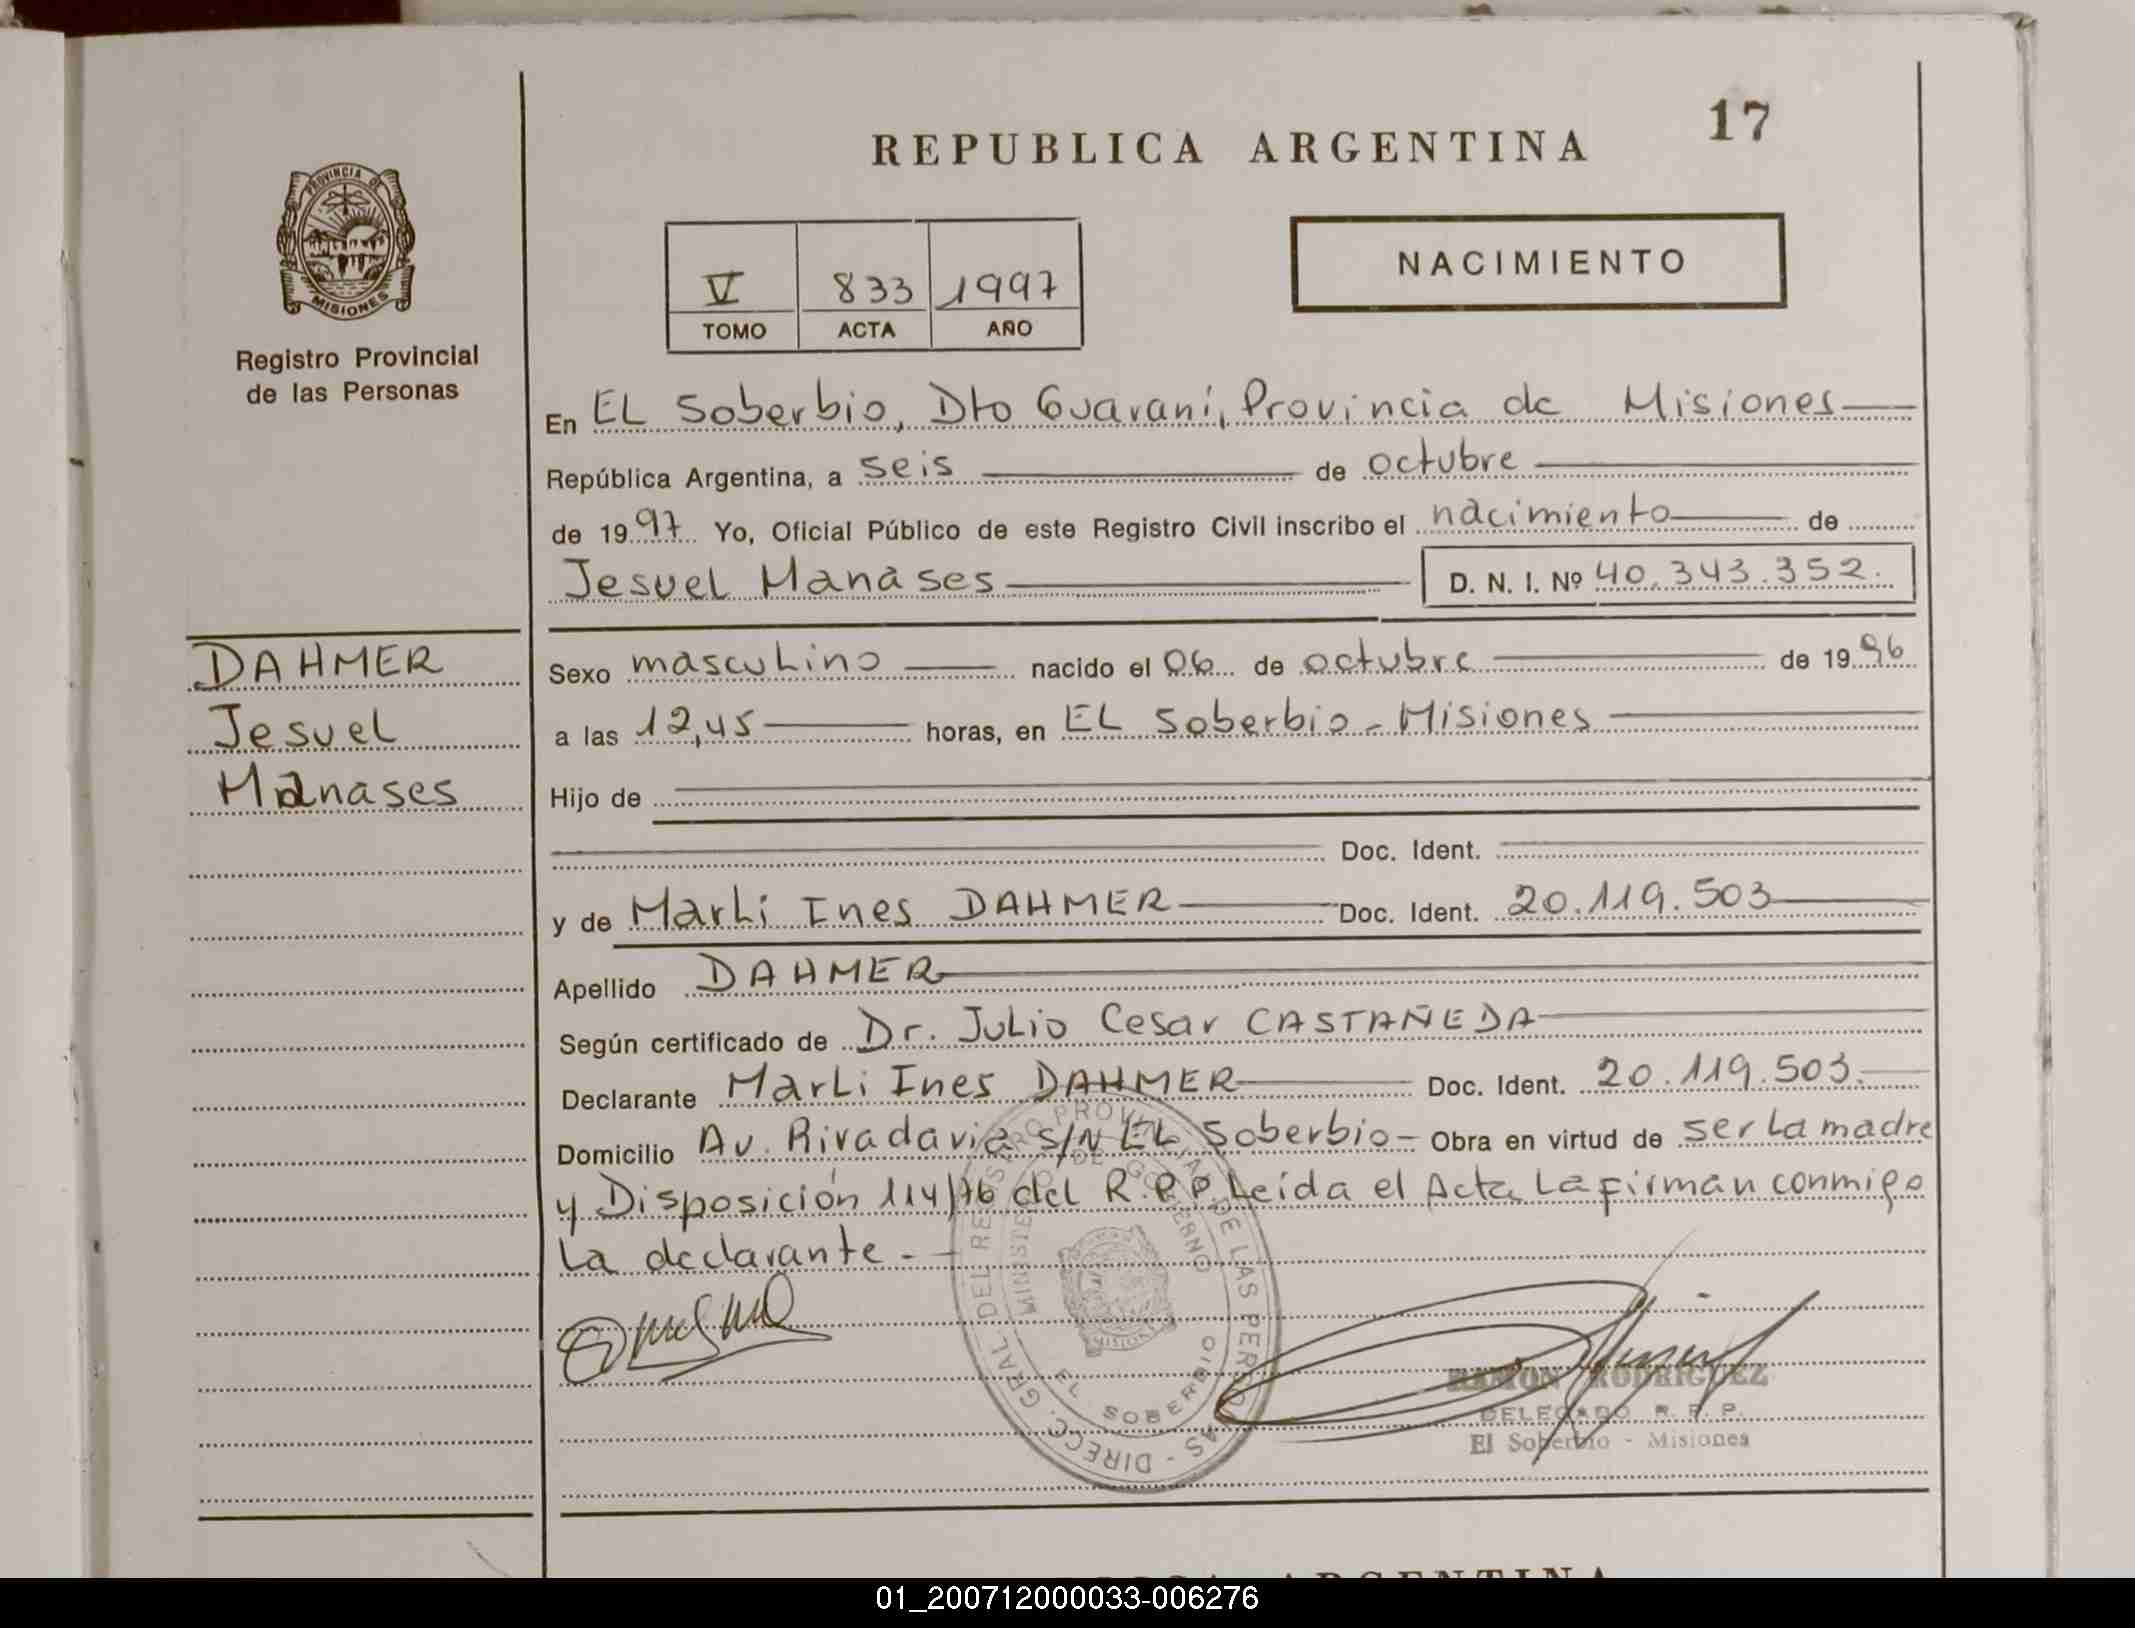 REPUBLICA ARGENTINA
17
PROVINCIA DE
MISIONES
Registro Provincial
de las Personas
V 833 1997
TOMO ACTA AÑO
NACIMIENTO
En EL Soberbio, Dto Guaraní, Provincia de Misiones
República Argentina, a seis de octubre
de 1997 Yo, Oficial Público de este Registro Civil inscribo el nacimiento de
Jesuel Manases D. N. I. Nº 40.343.352.
DAHMER
Jesuel
Manases
Sexo masculino nacido el 06 de octubre de 1996
a las 12,45 horas, en EL Soberbio - Misiones
Hijo de
Doc. Ident.
y de Marli Ines DAHMER Doc. Ident. 20.119.503
Apellido DAHMER
Según certificado de Dr. Julio Cesar CASTAÑEDA
Declarante Marli Ines DAHMER Doc. Ident. 20.119.503.
Domicilio Av. Rivadavia s/N EL Soberbio - Obra en virtud de ser la madre
y Disposición 114/76 del R.P.P Leída el Acta La firman conmigo
La declarante. -
DIREC. GRAL DEL REGISTRO PROVINCIAL DE LAS PERSONAS
MINISTERIO DE GOBIERNO
MISIONES
EL SOBERBIO
RAMON RODRIGUEZ
DELEGADO R. P. P.
El Soberbio - Misiones
REPUBLICA ARGENTINA
01_200712000033-006276